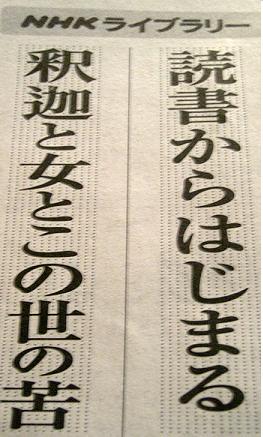 NHKライブラリー
読書からはじまる
釈迦と女とこの世の苦